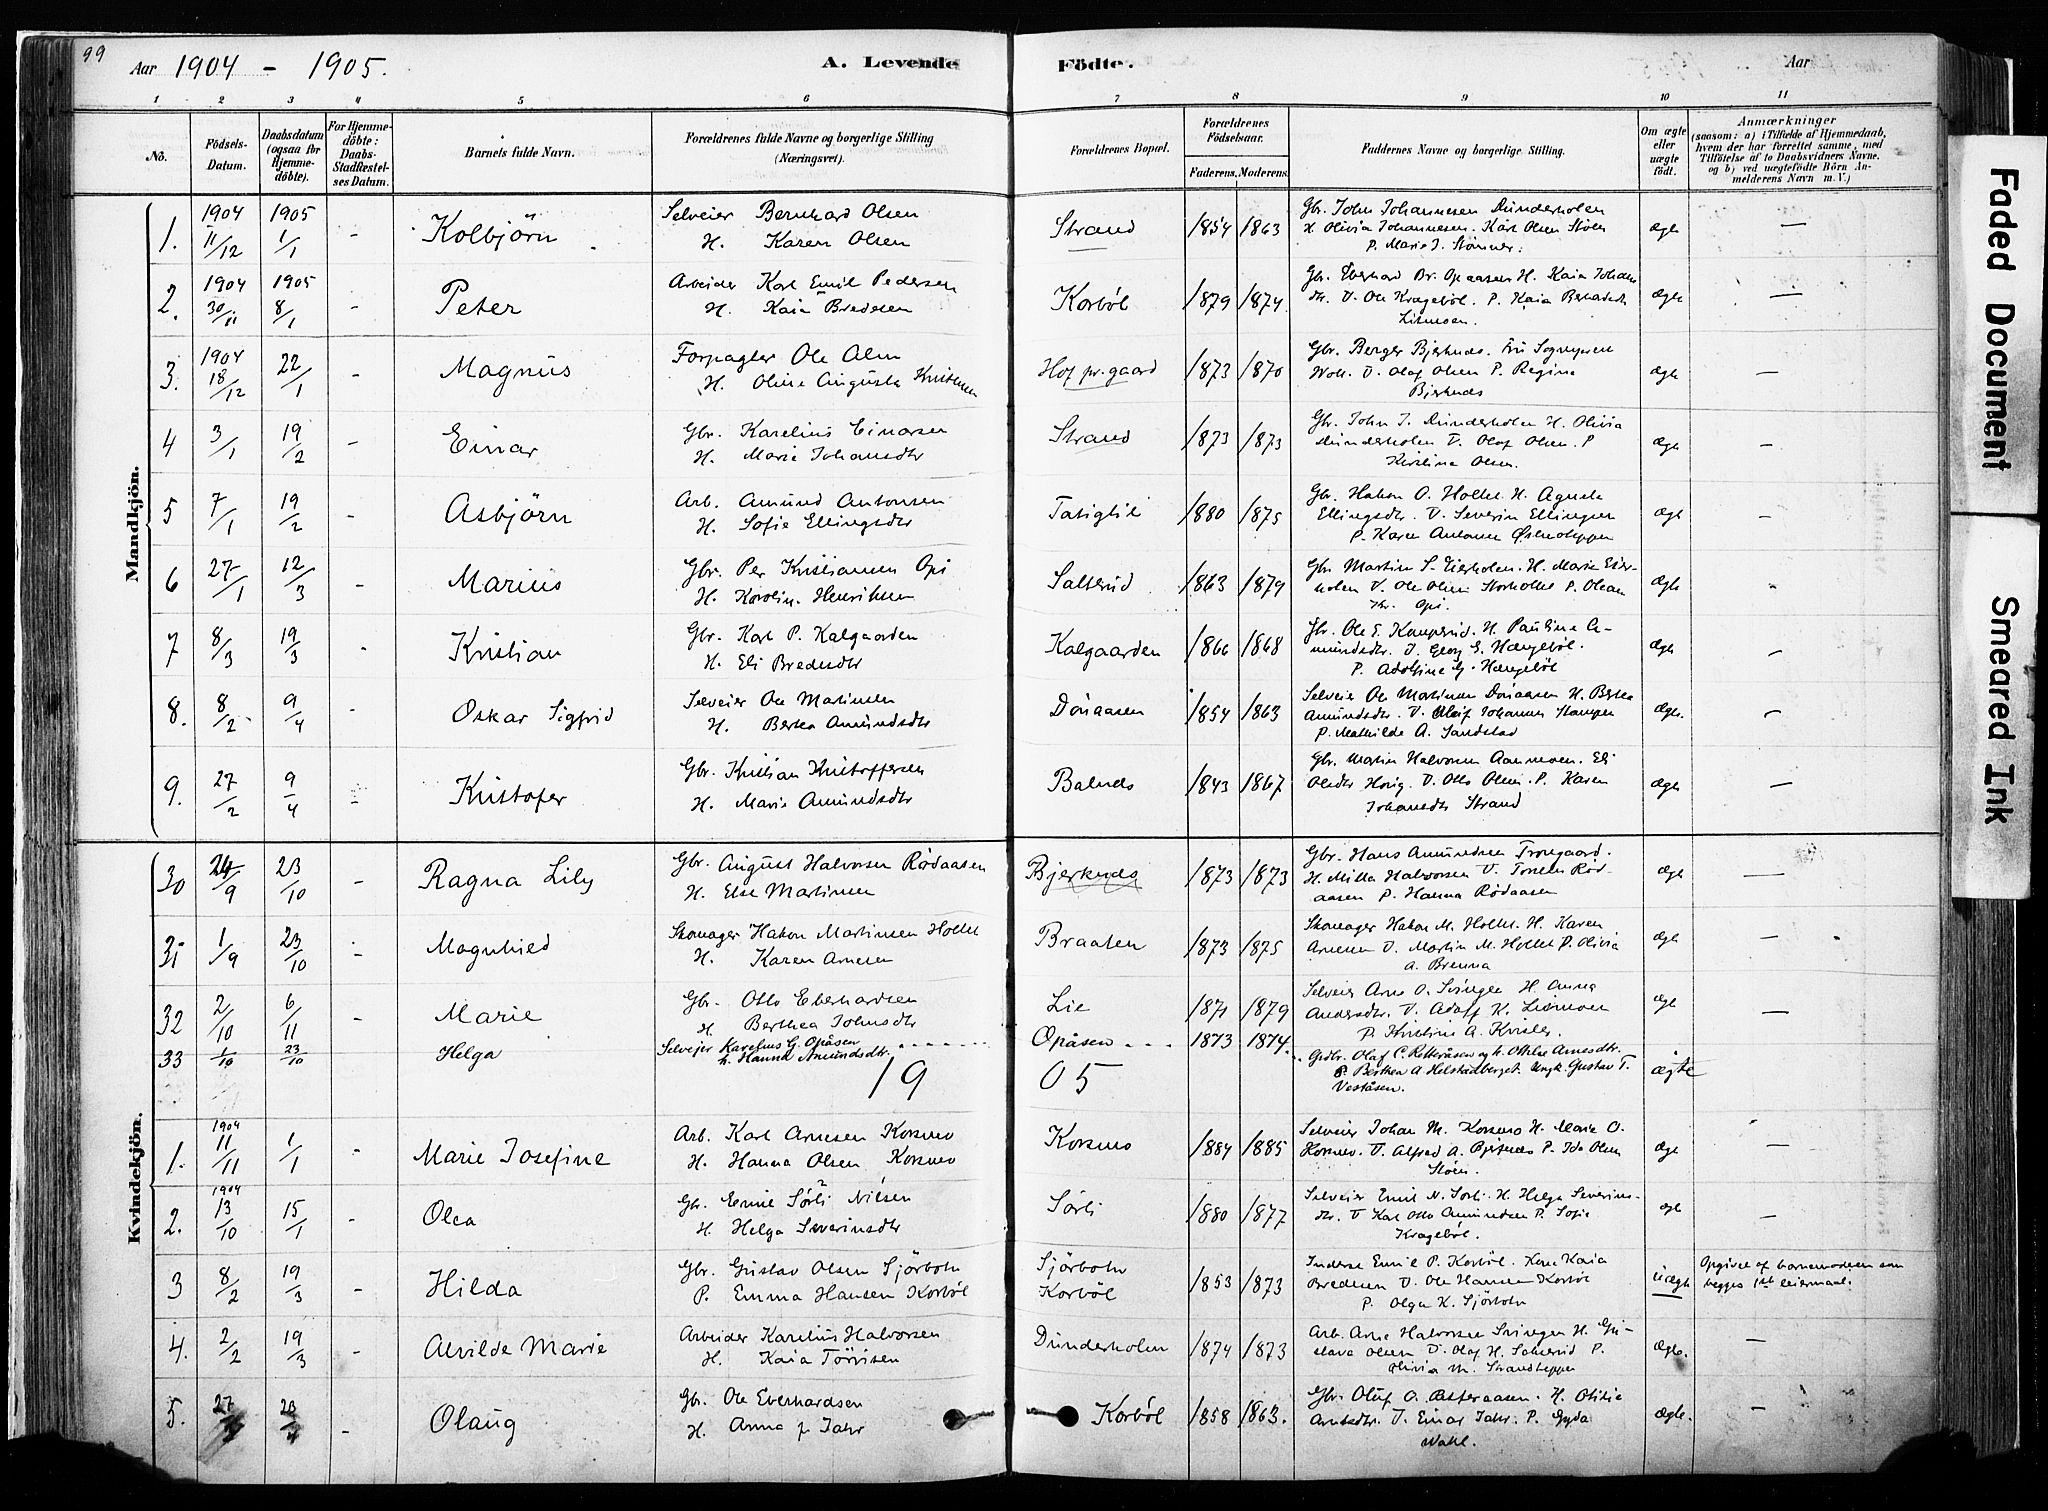 99
Aar 1904 - 1905.
A. Levende Födte.
Aar
1 2 3 4 5 6 7 8 9 10 11
No.
Födsels-Datum.
Daabsdatum (ogsaa for Hjemmedöbte).
For Hjemmedöbte: Daabs-Stadfæstelses Datum.
Barnets fulde Navn.
Forældrenes fulde Navne og borgerlige Stilling (Næringsvei).
Forældrenes Bopæl.
Forældrenes Födselsaar.
Faderens. Moderens.
Faddernes Navne og borgerlige Stilling.
Om ægte eller uægte födt.
Anmærkninger
(saasom: a) i Tilfælde af Hjemmedaab, hvem der har forrettet samme, med Tilföielse af to Daabsvidners Navne, og b) ved uægtefödte Börn Anmelderens Navn m. V.)
Mandkjön.
1. 1904 11/12 1905 1/1 - Kolbjörn Selveier Bernhard Olsen
H. Karen Olsen Strand 1854 1863 Gbr. John Johannesen Dünderholen
H. Olivia Johannesen. Karl Olsen Støen
P. Marie J. Stømner. ægte —
2. 1904 30/11 1905 8/1 - Peter Arbeider Karl Emil Pedersen
H. Kaia Bredesen Korböl 1879 1874 Gbr. Eberhard Br. Opaasen H. Kaia
U. Ole Krageböl. P. Kaia ægte —
3. 1904 18/12 22/1 - Magnus Forpagter Ole Alm
H. Oline Augusta Kristensen Hof pr.gaard 1873 1870 Gbr. Berger Bjerknds. Fru Sogneprest
Woll. U. Olaf Olsen P. Regine
Bjerknds ægte —
4 3/1 19/2 - Einar Gbr. Karelius Einarsen
H. Marie Johansdtr Strand 1873 1873 Gbr. John J. Dünderholen H. Olivia
Dünderholen U. Olaf Olsen. P
Kirstine Olsen. ægte —
5 7/1 19/2 - Asbjörn Arb. Amund Antonsen
H. Sofie Ellingsdtr 1880 1875 Gbr. Hakon O. Holtet H. Agnete
Ellingsdtr. U. Severin Ellingsen
P. Karen Antonsen ægte —
6 27/1 12/3 - Marius Gbr. Per Kristiansen Opi
H. Karoline Henriksen Salterud 1863 1879 Gbr Martin S. Eierholen. H. Marie Eier-
holen U. Ole Olsen Storholtet P. Olean
Opi. ægte -
7 8/3 19/3 - Kristian Gbr. Karl P. Kalgaarden
H. Eli Bredesdtr Kalgaarden 1866 1868 Gbr. Ole E. Kamperud. H. Pauline A-
mundsdtr. U. Georg G. Hængeböl.
P. Adolfine G. Hængeböl ægte -
8. 8/2 9/4 - Oskar Sigfrid Selveier Ole Martinsen
H. Bertea Amundsdtr Dönaasen 1854 1863 Selveier Ole Martinsen Dönaasen H. Bertea
Amundsdtr. U. Olaf Johannes Kampen
P. Mathilde A. Sandstad ægte. -
9. 27/2 9/4 - Kristofer Gbr. Kristian Kristoffersen
H. Marie Amundsdtr Balnds 1843 1867 Gbr. Martin Halvorsen Aanmoen. Eli
Olsdtr Honig. U. Otto Olsen. P. Karen
Johansdtr Strand ægte —
Kvindekjön.
30 24/9 23/10 - Ragna Lily Gbr. August Halvorsen Rödaasen
H. Else Martinsen Bjerknds 1873 1873 Gbr. Hans Amundsen Trongaard.
H. Milla Halvorsen U. Torsten Röd-
aasen P. Hanna Rödaasen ægte —
31 1/9 23/10 - Magnhild Skomager Hakon Martinsen Holtet
H. Karen Arnesen Braaten 1873 1875 Skomager Hakon M. Holtet. H. Karen
Arnesen U. Martin M. Holtet P. Olivia
A. Brenna ægte —
32 2/10 6/11 - Marie Gbr. Otto Eberhardsen
H. Berthea Johnsdtr Lie 1871 1879 Selveier Arne O. Svingen H. Anna
Andersdtr. U. Adolf K. Liermoen
P. Kristine A. Kvisler. ægte —
33 1/10 23/10 Helga Selveier Karelius G. Opåsen
h. Hanna Amundsdtr. Opåsen 1873 1874. Grdbr. Olaf C. Retteråsen og h. Othilie Arnesdtr.
P. Berthea A Helstadberget. Ungk. Gustav T.
Veståsen. ægte
19 05
1. 1904 11/11 1/1 - Marie Josefine Arb. Karl Arnesen Korsmo
H. Hanna Olsen Korsmo Korsmo 1884 1885 Selveier Johan M. Korsmo H. Marie O.
Korsmo. U. Alfred A. Bjerknds P. Ida Olsen
Støen. ægte —
2. 1904 13/10 15/1 - Olea Gbr. Emil Sörli Nilsen
H. Helga Severinsdtr Sörli 1880 1877 Selveier Emil N. Sörli. H. Helga Severins-
dtr. U Karl Otto Amundsen P. Sofie
Krageböl. ægte —
3 8/2 19/3 - Hilda Gbr. Gustav Olsen Sjörboln
P. Emma Hansen Korböl Sjörboln
Korböl 1853 1873 Inderst Emil P. Korböl. Kone Kaia
Bredesen U. Ole Hansen Korböl
P. Olga K. Sjörboln uægte Opgivet af barnemoderen som
begges 1ste leiermaal.
4. 2/2 19/3 - Alvilde Marie Arbeider Karelius Halvorsen
H. Kaia Törrisen Dünderholen 1874 1873 Arb. Arne Halvorsen Svingen H. Gu-
stava Olsen U. Olaf H. Salterud P.
Olivia M. Strandteppen ægte. —
5. 27 23 - Olaug Gbr. Ole Eberhardsen
H. Anna f. Jahr Korböl 1858 1863. Gbr. Oluf O. H. Otilie
Arntsdtr. U. Einar Jahr. P. Gyda
Wahl. ægte. —
Faded Document
Smeared Ink